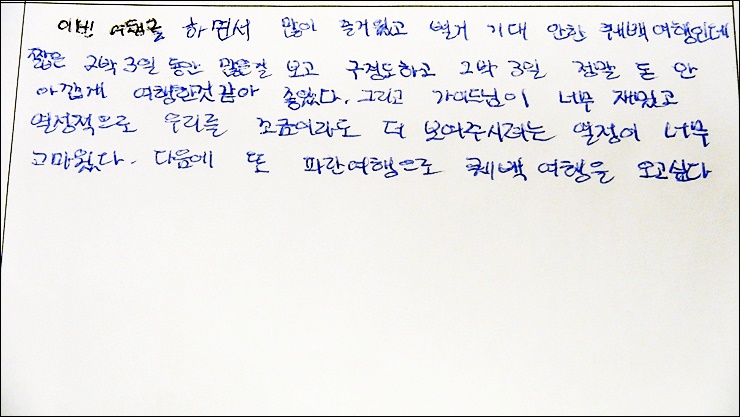 이번 여행을 하면서 많이 즐거웠고 별거 기대 안한 퀘백여행인데
짧은 2박3일 동안 많은걸 보고 구경도하고 2박 3일 정말 돈 안
아깝게 여행한것같아 좋았다. 그리고 가이드님이 너무 재밌고
열정적으로 우리를 조금이라도 더 보여주시려는 열정이 너무
고마웠다. 다음에 또 파란여행으로 퀘백 여행을 오고싶다